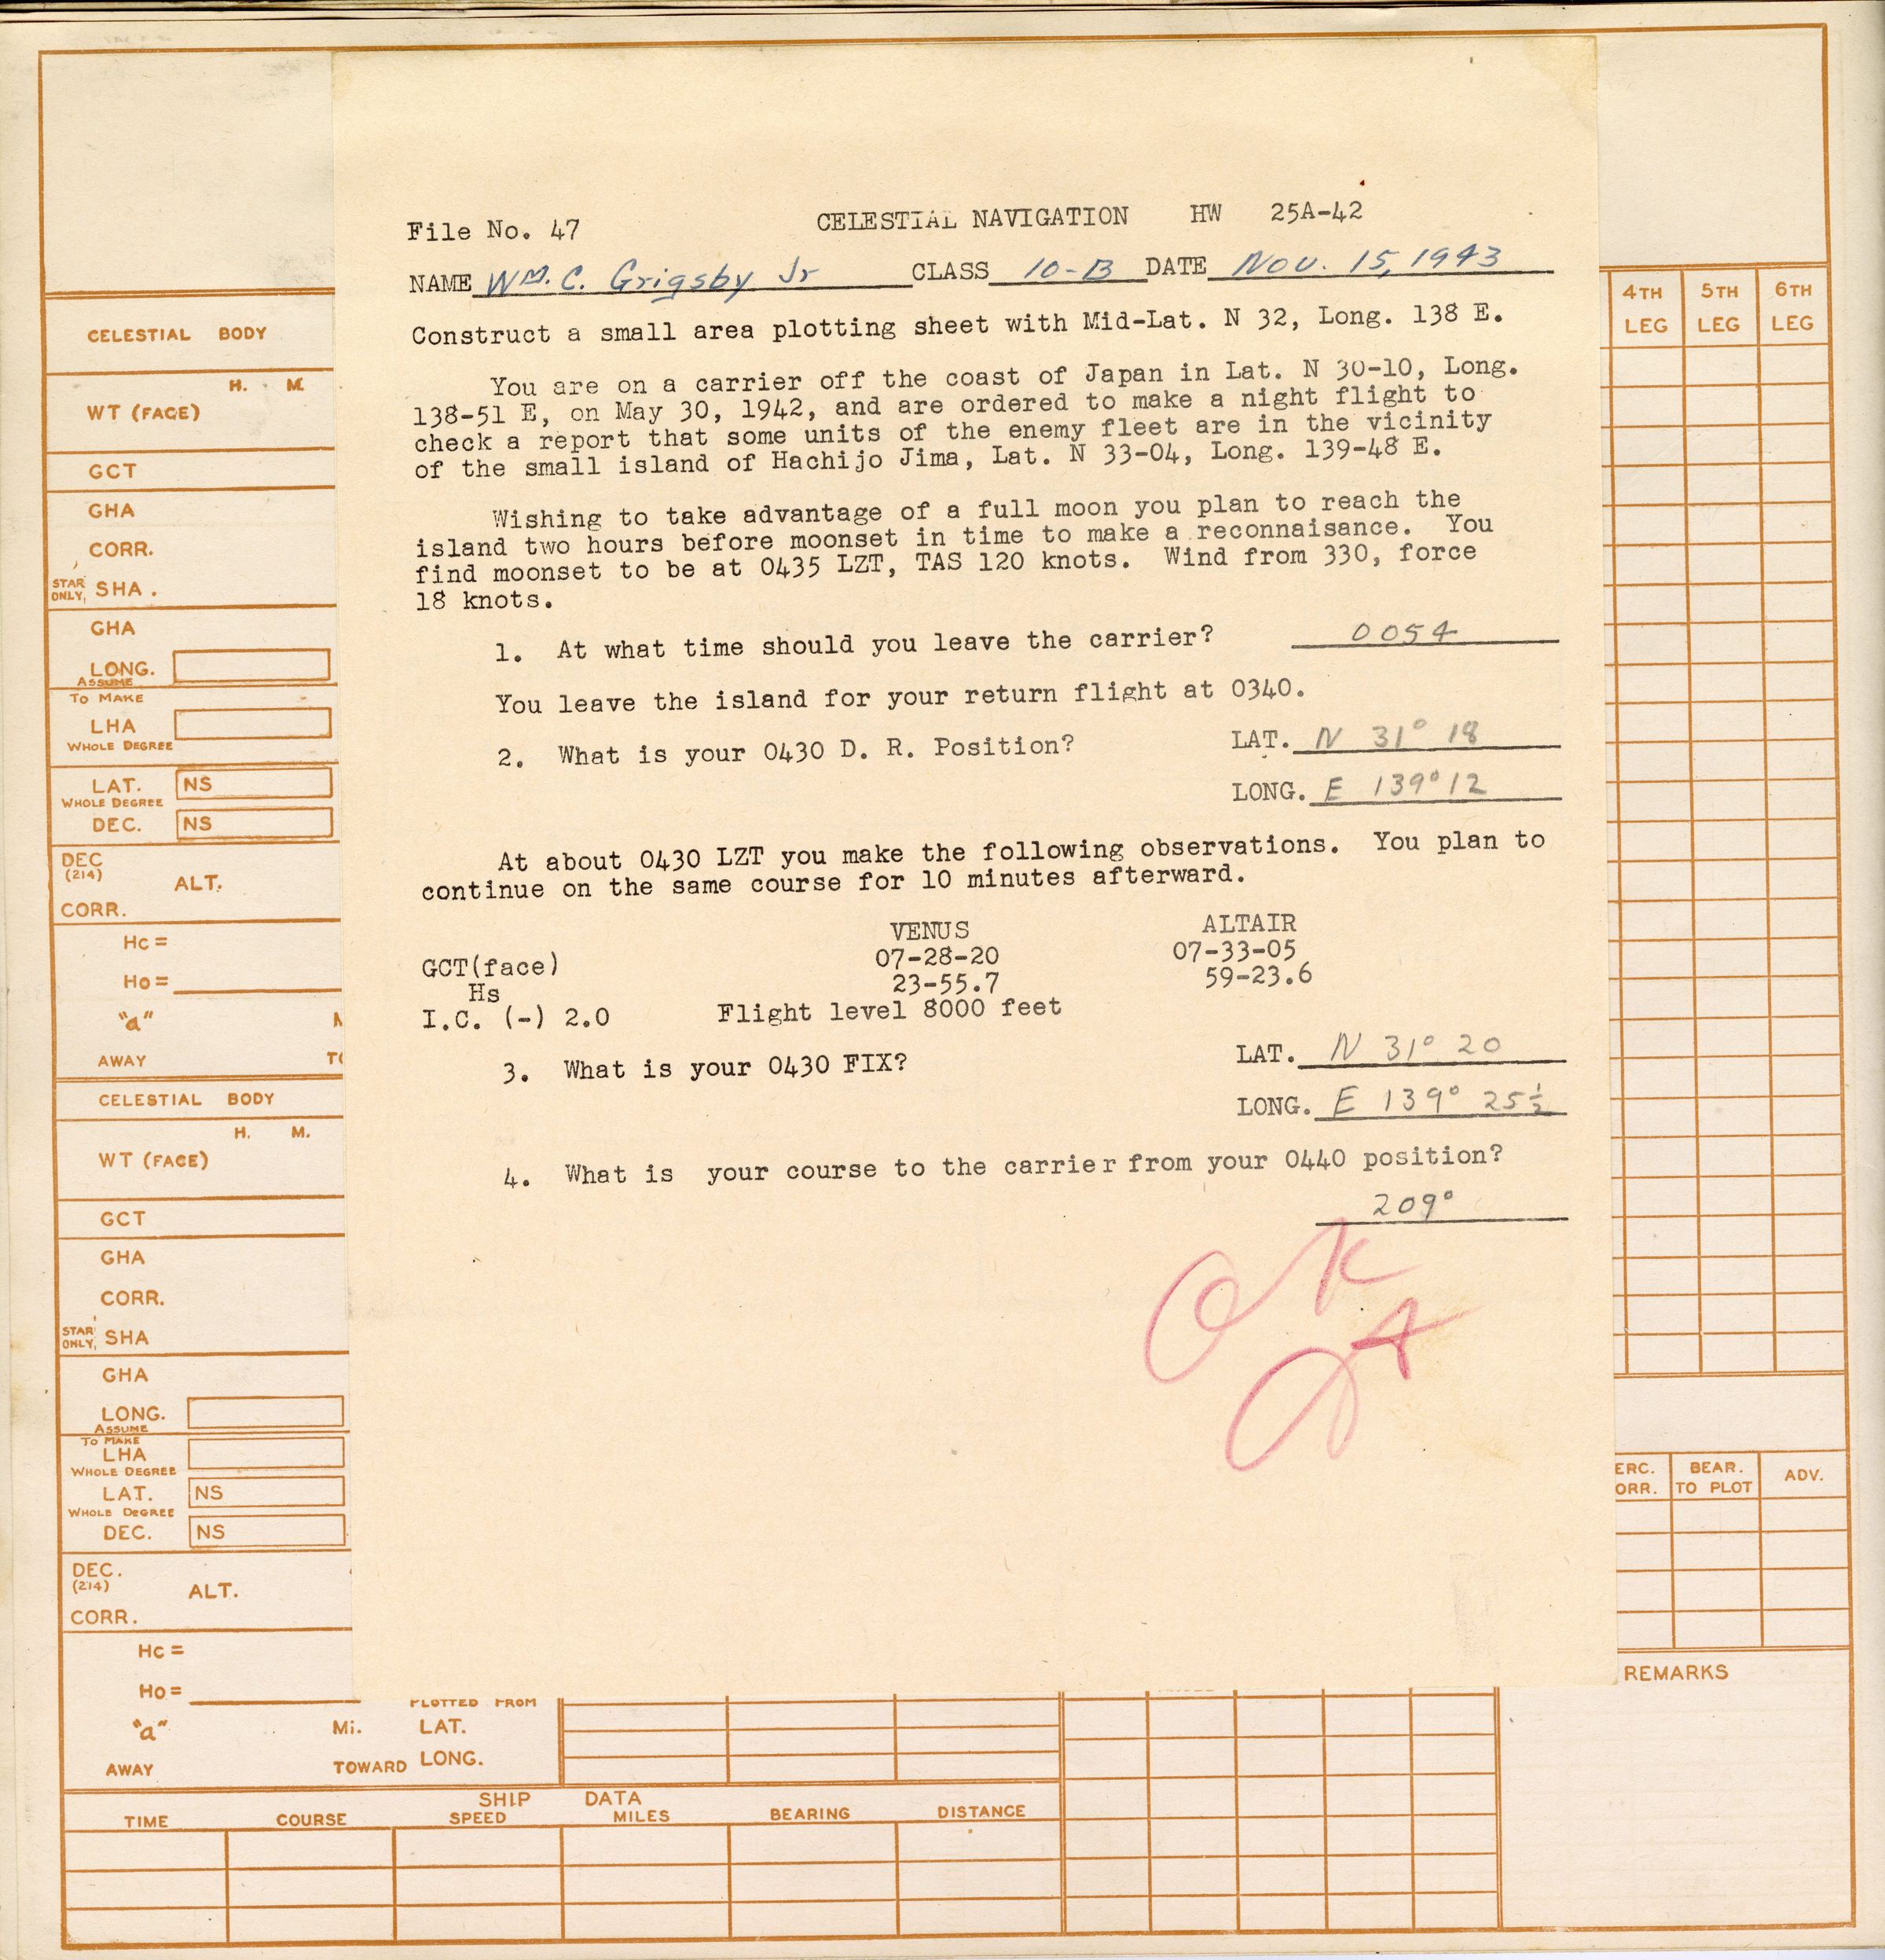 File No. 47 CELESTIAL NAVIGATION HW 25A-42
NAME Wm. C. Grigsby Jr CLASS 10-B DATE Nov. 15, 1943
Construct a small area plotting sheet with Mid-Lat. N 32, Long. 138 E.
You are on a carrier off the coast of Japan in Lat. N 30-10, Long.
138-51 E, on May 30, 1942, and are ordered to make a night flight to
check a report that some units of the enemy fleet are in the vicinity
of the small island of Hachijo Jima, Lat. N 33-04, Long. 139-48 E.
Wishing to take advantage of a full moon you plan to reach the
island two hours before moonset in time to make a reconnaisance. You
find moonset to be at 0435 LZT, TAS 120 knots. Wind from 330, force
18 knots.
1. At what time should you leave the carrier? 0054
You leave the island for your return flight at 0340.
2. What is your 0430 D. R. Position? LAT. N 31° 18
LONG. E 139° 12
At about 0430 LZT you make the following observations. You plan to
continue on the same course for 10 minutes afterward.
VENUS ALTAIR
GCT(face) 07-28-20 07-33-05
Hs 23-55.7 59-23.6
I.C. (-) 2.0 Flight level 8000 feet
3. What is your 0430 FIX? LAT. N 31° 20
LONG. E 139° 25½
4. What is your course to the carrier from your 0440 position?
209°
OK
CELESTIAL BODY
H. M.
WT (FACE)
GCT
GHA
CORR.
STAR ONLY, SHA.
GHA
LONG.
ASSUME
TO MAKE
LHA
WHOLE DEGREE
LAT. NS
WHOLE DEGREE
DEC. NS
DEC
(214) ALT.
CORR.
Hc =
Ho =
"a"
AWAY
CELESTIAL BODY
H. M.
WT (FACE)
GCT
GHA
CORR.
STAR ONLY, SHA
GHA
LONG.
ASSUME
TO MAKE
LHA
WHOLE DEGREE
LAT. NS
WHOLE DEGREE
DEC. NS
DEC.
(214) ALT.
CORR.
Hc =
Ho =
PLOTTED FROM
"a" Mi. LAT.
AWAY TOWARD LONG.
SHIP DATA
TIME COURSE SPEED MILES BEARING DISTANCE
4TH LEG 5TH LEG 6TH LEG
BEAR. TO PLOT ADV.
REMARKS